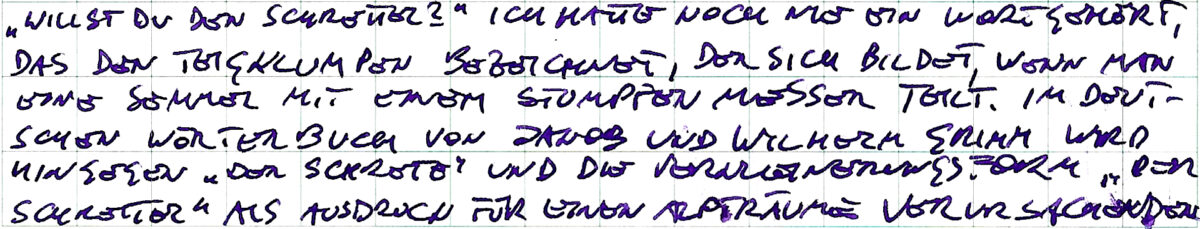 „WILLST DU DEN SCHRETTER?“ ICH HATTE NOCH NIE EIN WORT GEHÖRT,
DAS DEN TEIGKLUMPEN BEZEICHNET, DER SICH BILDET, WENN MAN
EINE SEMMEL MIT EINEM STUMPFEN MESSER TEILT. IM DEUT-
SCHEN WÖRTERBUCH VON JAKOB UND WILHELM GRIMM WIRD
HINGEGEN „DER SCHRETE“ UND DIE VERKLEINERUNGSFORM „DER
SCHRETTER“ ALS AUSDRUCK FÜR EINEN ALPTRÄUME VERURSACHENDEN